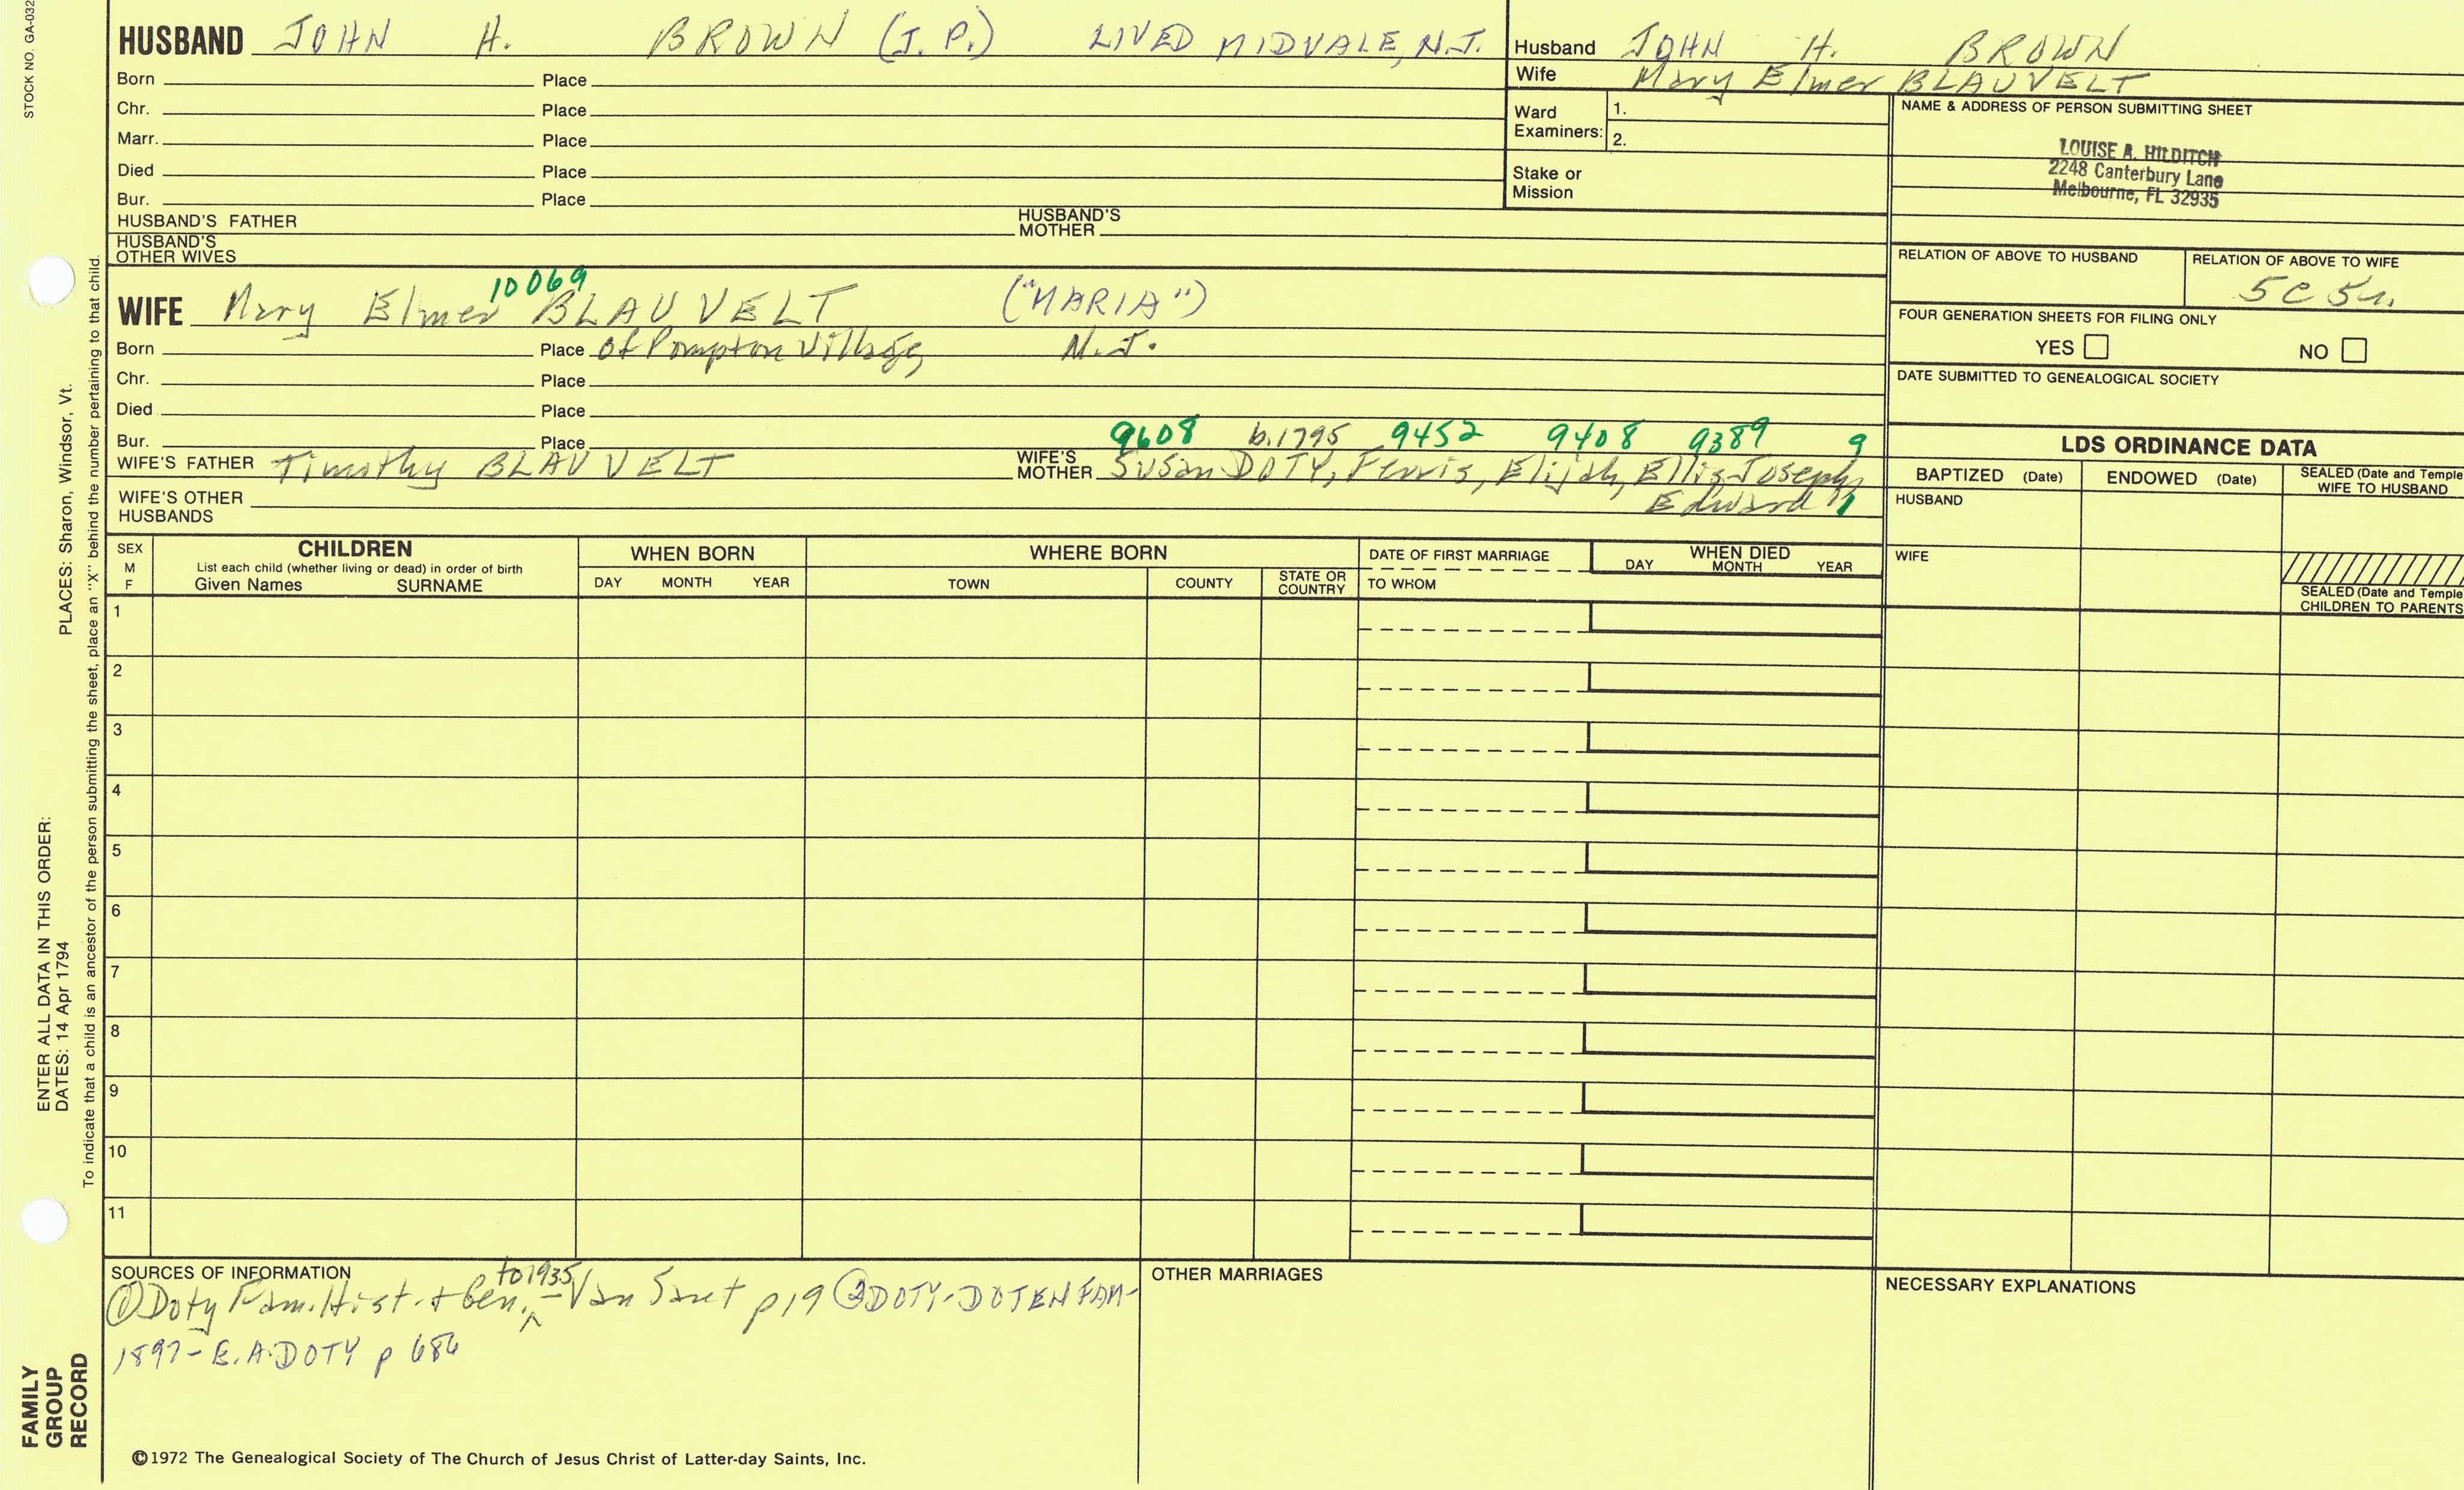 STOCK NO. GA-032
PLACES: Sharon, Windsor, Vt.
ENTER ALL DATA IN THIS ORDER:
DATES: 14 Apr 1794
To indicate that a child is an ancestor of the person submitting the sheet, place an "X" behind the number pertaining to that child.
FAMILY
GROUP
RECORD
HUSBAND JOHN H. BROWN (J. P.) LIVED MIDVALE, N.J.
Born Place
Chr. Place
Marr. Place
Died Place
Bur. Place
HUSBAND'S FATHER HUSBAND'S MOTHER
HUSBAND'S OTHER WIVES
10069
WIFE Mary Elmer BLAUVELT ("MARIA")
Born Place of Pompton Village, N.J.
Chr. Place
Died Place
Bur. Place
9608 b.1795 9452 9408 9389 9
WIFE'S FATHER Timothy BLAUVELT WIFE'S MOTHER Susan DOTY, Ferris, Elijah, Ellis, Joseph,
Edward
WIFE'S OTHER HUSBANDS
Husband JOHN H. BROWN
Wife Mary Elmer BLAUVELT
Ward Examiners: 1.
2.
Stake or Mission
NAME & ADDRESS OF PERSON SUBMITTING SHEET
LOUISE A. HILDITCH
2248 Canterbury Lane
Melbourne, FL 32935
RELATION OF ABOVE TO HUSBAND RELATION OF ABOVE TO WIFE
5C
FOUR GENERATION SHEETS FOR FILING ONLY
YES NO
DATE SUBMITTED TO GENEALOGICAL SOCIETY
LDS ORDINANCE DATA
BAPTIZED (Date) ENDOWED (Date) SEALED (Date and Temple
WIFE TO HUSBAND
HUSBAND
WIFE
SEALED (Date and Temple
CHILDREN TO PARENTS
SEX M F
CHILDREN
List each child (whether living or dead) in order of birth
Given Names SURNAME
WHEN BORN
DAY MONTH YEAR
WHERE BORN
TOWN COUNTY STATE OR COUNTRY
DATE OF FIRST MARRIAGE
TO WHOM
WHEN DIED
DAY MONTH YEAR
1
2
3
4
5
6
7
8
9
10
11
SOURCES OF INFORMATION
to 1935
① Doty Fam. Hist. + Gen. - Van Sant p19 ② DOTY-DOTEN FAM-
1897- E.A. DOTY p 686
OTHER MARRIAGES
NECESSARY EXPLANATIONS
©1972 The Genealogical Society of The Church of Jesus Christ of Latter-day Saints, Inc.